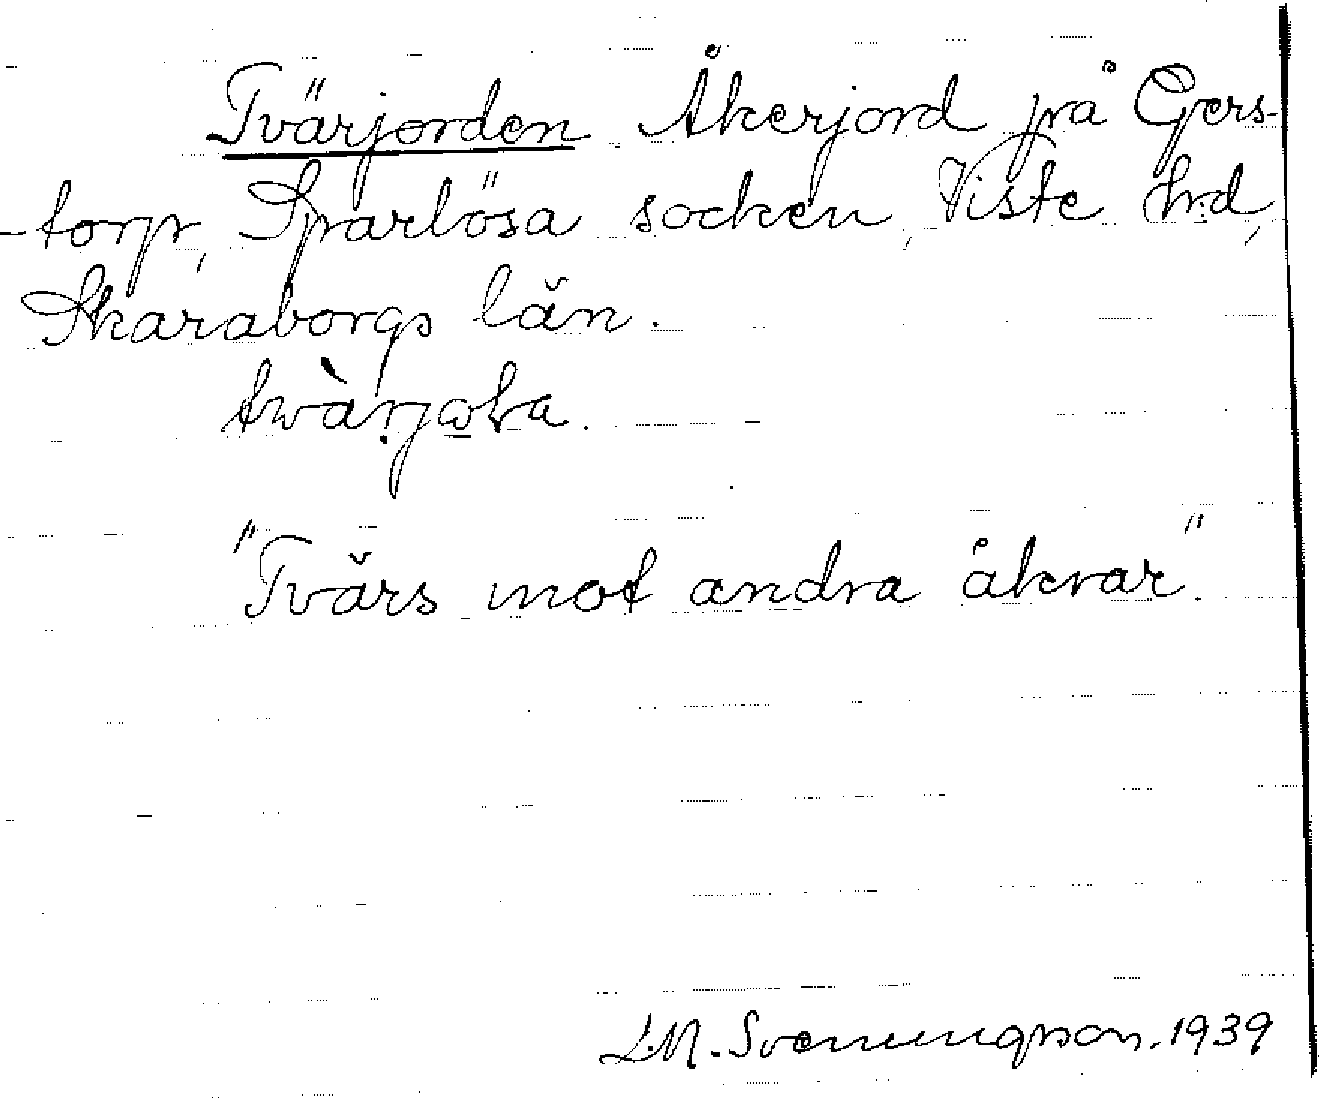 Tvärjorden Åkerjord på Gers-
-torp, Sparlösa socken, Viste hrd,
Skaraborgs län.
"Tvärs mot andra åkrar".
L.M. Svenungsson. 1939